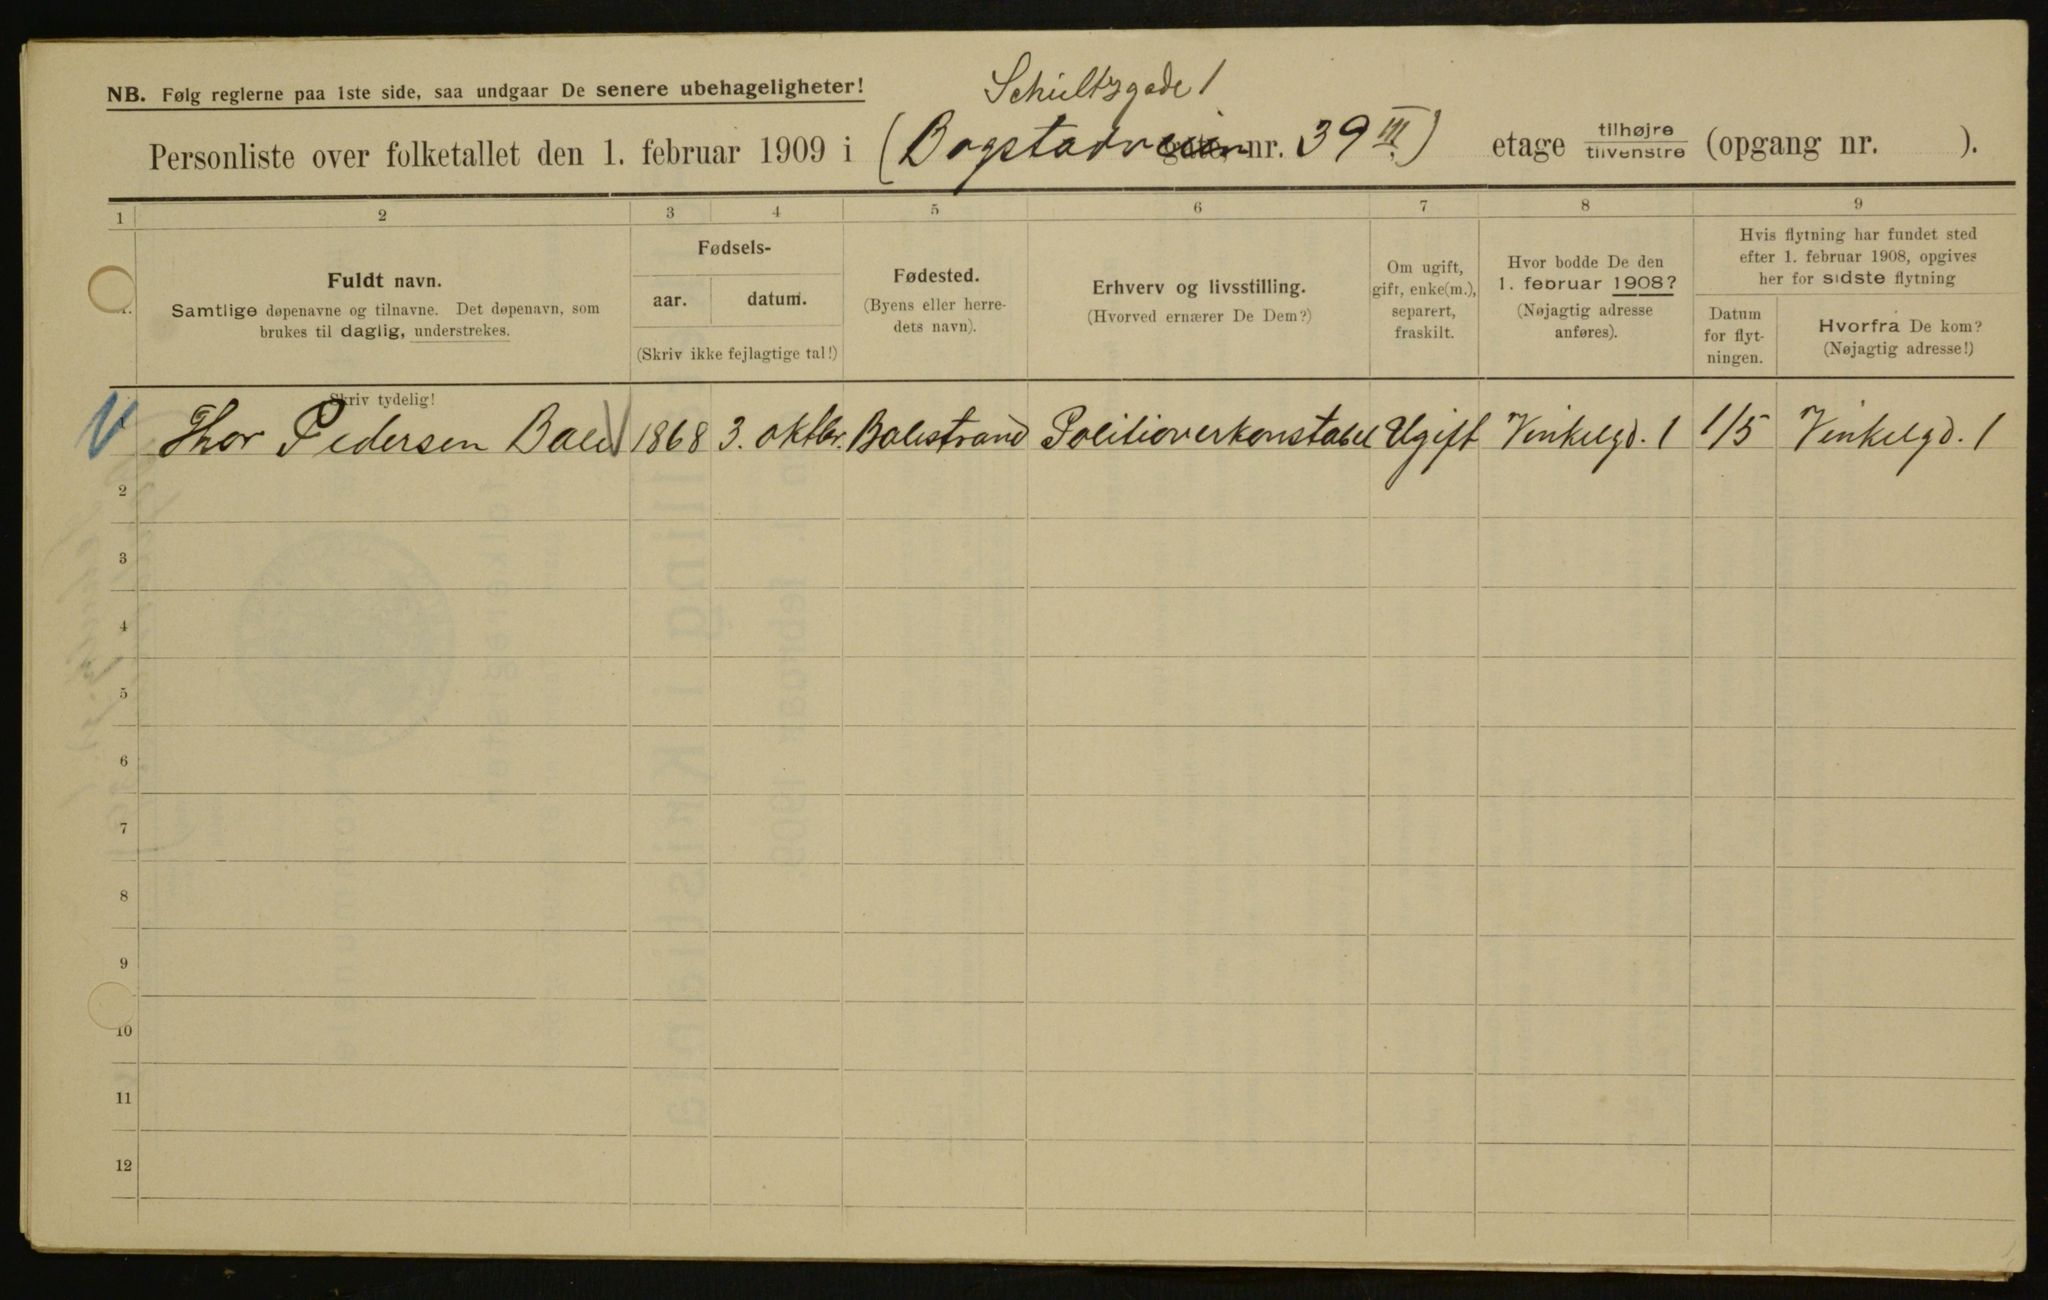 Schultzgade 1
NB. Følg reglerne paa 1ste side, saa undgaar De senere ubehageligheter!
Personliste over folketallet den 1. februar 1909 i (Bogstadveien nr. 39 III) etage tilhøjre tilvenstre (opgang nr. ).
1 2 3 4 5 6 7 8 9
Fuldt navn.
Samtlige døpenavne og tilnavne. Det døpenavn, som
brukes til daglig, understrekes.
Skriv tydelig!
Fødsels-
aar. datum.
(Skriv ikke fejlagtige tal!)
Fødested.
(Byens eller herre-
dets navn).
Erhverv og livsstilling.
(Hvorved ernærer De Dem?)
Om ugift,
gift, enke(m.),
separert,
fraskilt.
Hvor bodde De den
1. februar 1908?
(Nøjagtig adresse
anføres).
Hvis flytning har fundet sted
efter 1. februar 1908, opgives
her for sidste flytning
Datum
for flyt-
ningen.
Hvorfra De kom?
(Nøjagtig adresse!)
Thor Pedersen Bale 1868 3. oktbr. Balestrand Politioverkonstabel Ugift Vinkelgd. 1 1/5 Vinkelgd. 1
2
3
4
5
6
7
8
9
10
11
12